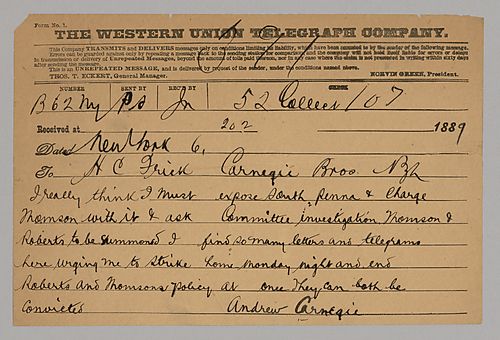 Form No. 1.
THE WESTERN UNION TELEGRAPH COMPANY.
This Company TRANSMITS and DELIVERS messages only on conditions limiting its liability, which have been assented to by the sender of the following message.
Errors can be guarded against only by repeating a message back to the sending station for comparison, and the company will not hold itself liable for errors or delays
in transmission or delivery of Unrepeated Messages, beyond the amount of tolls paid thereon, nor in any case where the claim is not presented in writing within sixty days
after sending the message.
This is an UNREPEATED MESSAGE, and is delivered by request of the sender, under the conditions named above.
THOS. T. ECKERT, General Manager. NORVIN GREEN, President.
NUMBER SENT BY REC'D BY CHECK
B62 Ny Ps Jn 52 Collect 107
Received at 202 1889
Dated New York 6,
To H C Frick Carnegie Bros
I really think I must expose South Penna & Charge
Thomson with it & ask Committee investigation Thomson &
Roberts to be summoned I find so many letters and telegrams
here urging me to strike home monday night and end
Roberts and Thomsons policy at once They can both be
Convicted Andrew Carnegie